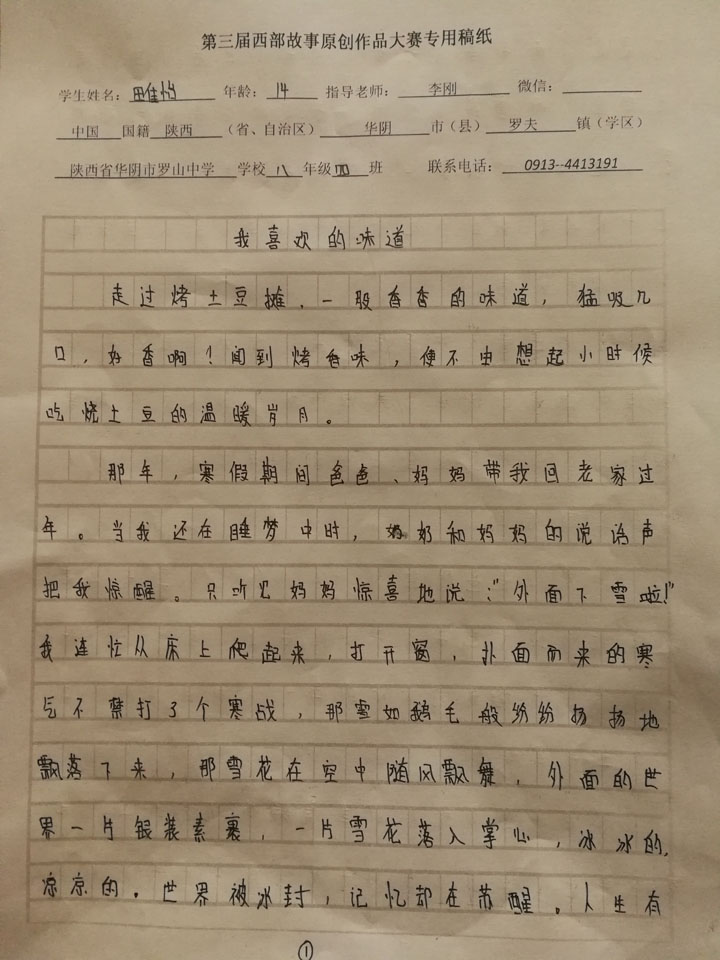 第三届西部故事原创作品大赛专用稿纸
学生姓名：田佳怡 年龄：14 指导老师：李刚 微信：
中国 国籍 陕西 （省、自治区） 华阴 市（县） 罗夫 镇（学区）
陕西省华阴市罗山中学 学校 八 年级 四 班 联系电话：0913--4413191
我喜欢的味道
走过烤土豆摊，一股香香的味道，猛吸几
口，好香啊！闻到烤香味，便不由想起小时候
吃烧土豆的温暖岁月。
那年，寒假期间爸爸、妈妈带我回老家过
年。当我还在睡梦中时，奶奶和妈妈的说话声
把我惊醒。只听见妈妈惊喜地说："外面下雪啦！"
我连忙从床上爬起来，打开窗，扑面而来的寒
气不禁打了个寒战，那雪如鹅毛般纷纷扬扬地
飘落下来，那雪花在空中随风飘舞，外面的世
界一片银装素裹，一片雪花落入掌心，冰冰的，
凉凉的。世界被冰封，记忆却在苏醒。人生有
①